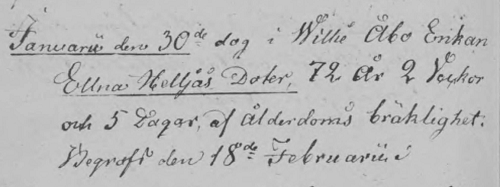 Januarii den 30de dog i Wilki Åbo Enkan
Ellna Nelljås Doter, 72 år 2 Veckor
och 5 Dagar, af Ålderdoms bräklighet.
Begrafs den 18de Februarii i